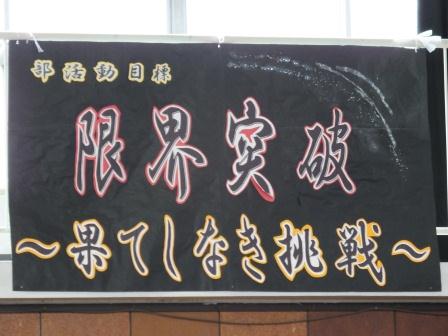 部活動目標
限界突破
～果てしなき挑戦～